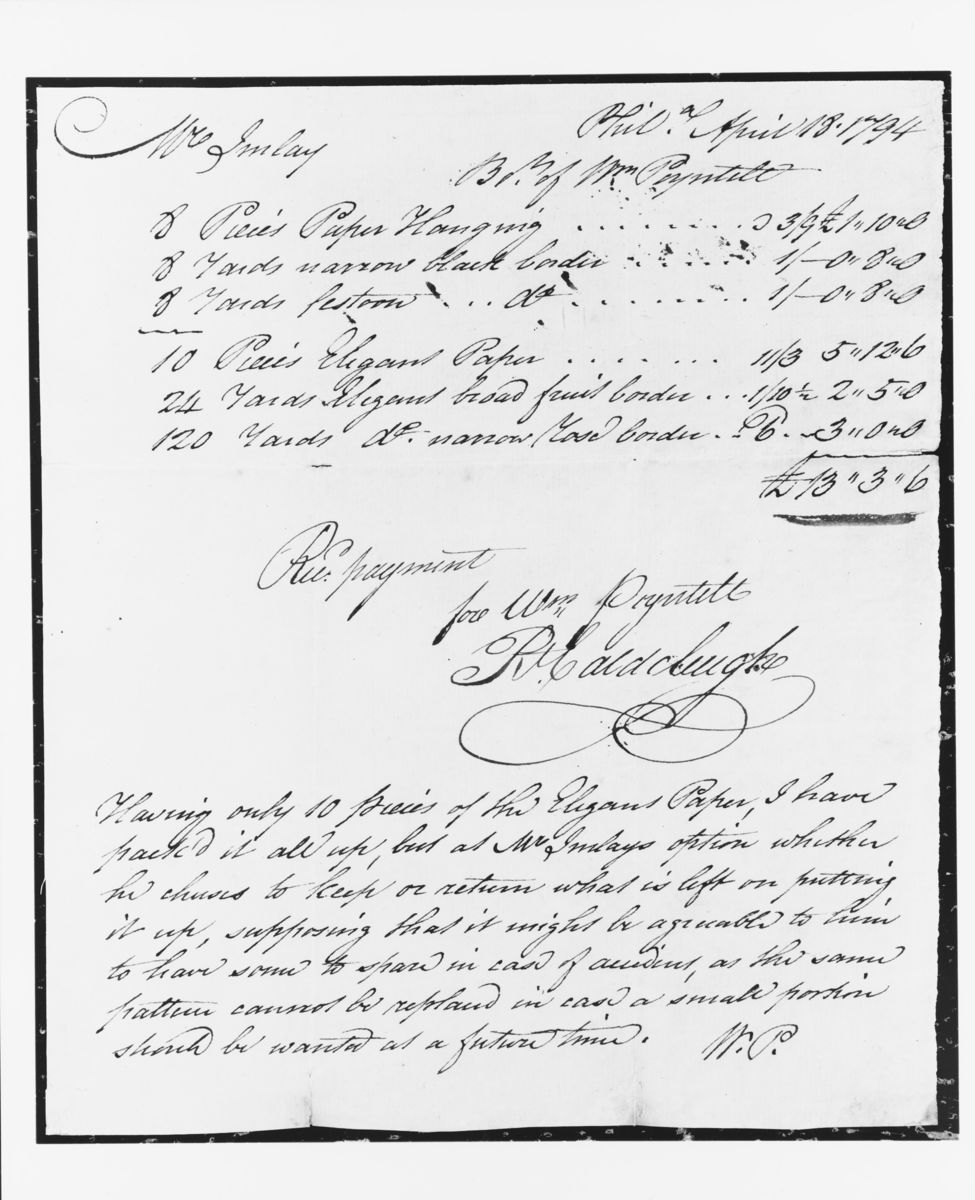 Phil.ª April 18. 1794
Mr Imlay
Bo.t of Wm Poyntell
8 Pieces Paper Hanging . . . . . . . . 3/9 £ 1 " 10 " 0
8 Yards narrow black border . . . . . . 1/— 0 " 8 " 0
8 Yards festoon . . . do . . . . . . . . 1/— 0 " 8 " 0
10 Pieces Elegant Paper . . . . . . . 11/3 5 " 12 " 6
24 Yards Elegant broad fruit border . . . 1/10½ 2 " 5 " 0
120 Yards do. narrow Rose border . . 6 . . 3 " 0 " 0
£ 13 " 3 " 6
Rec.d payment
for Wm Poyntell
Rt. Caldcleugh
Having only 10 pieces of the Elegant Paper, I have
pack'd it all up, but at Mr Imlays option whether
he chuses to keep or return what is left on putting
it up, supposing that it might be agreeable to him
to have some to spare in case of accident, as the same
pattern cannot be replaced in case a small portion
should be wanted at a future time. W. P.